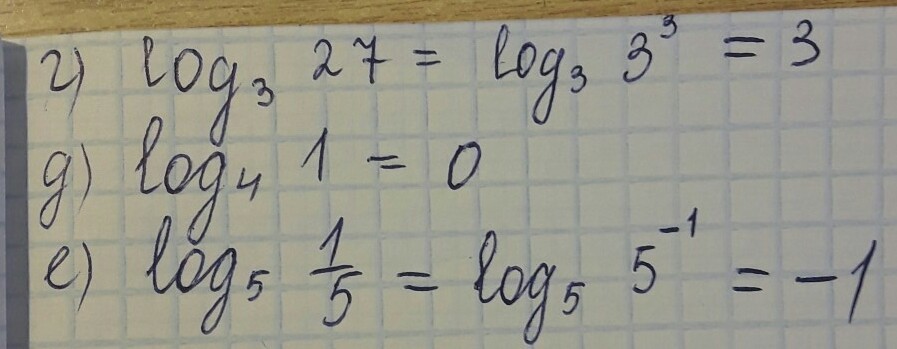 г) log₃ 27 = log₃ 3³ = 3
д) log₄ 1 = 0
е) log₅ 1/5 = log₅ 5⁻¹ = -1